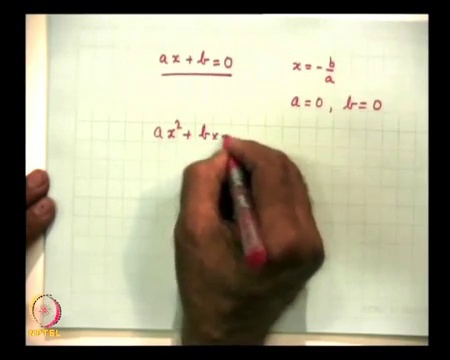 ax + b = 0
x = - b/a
a = 0, b = 0
ax² + bx
NPTEL